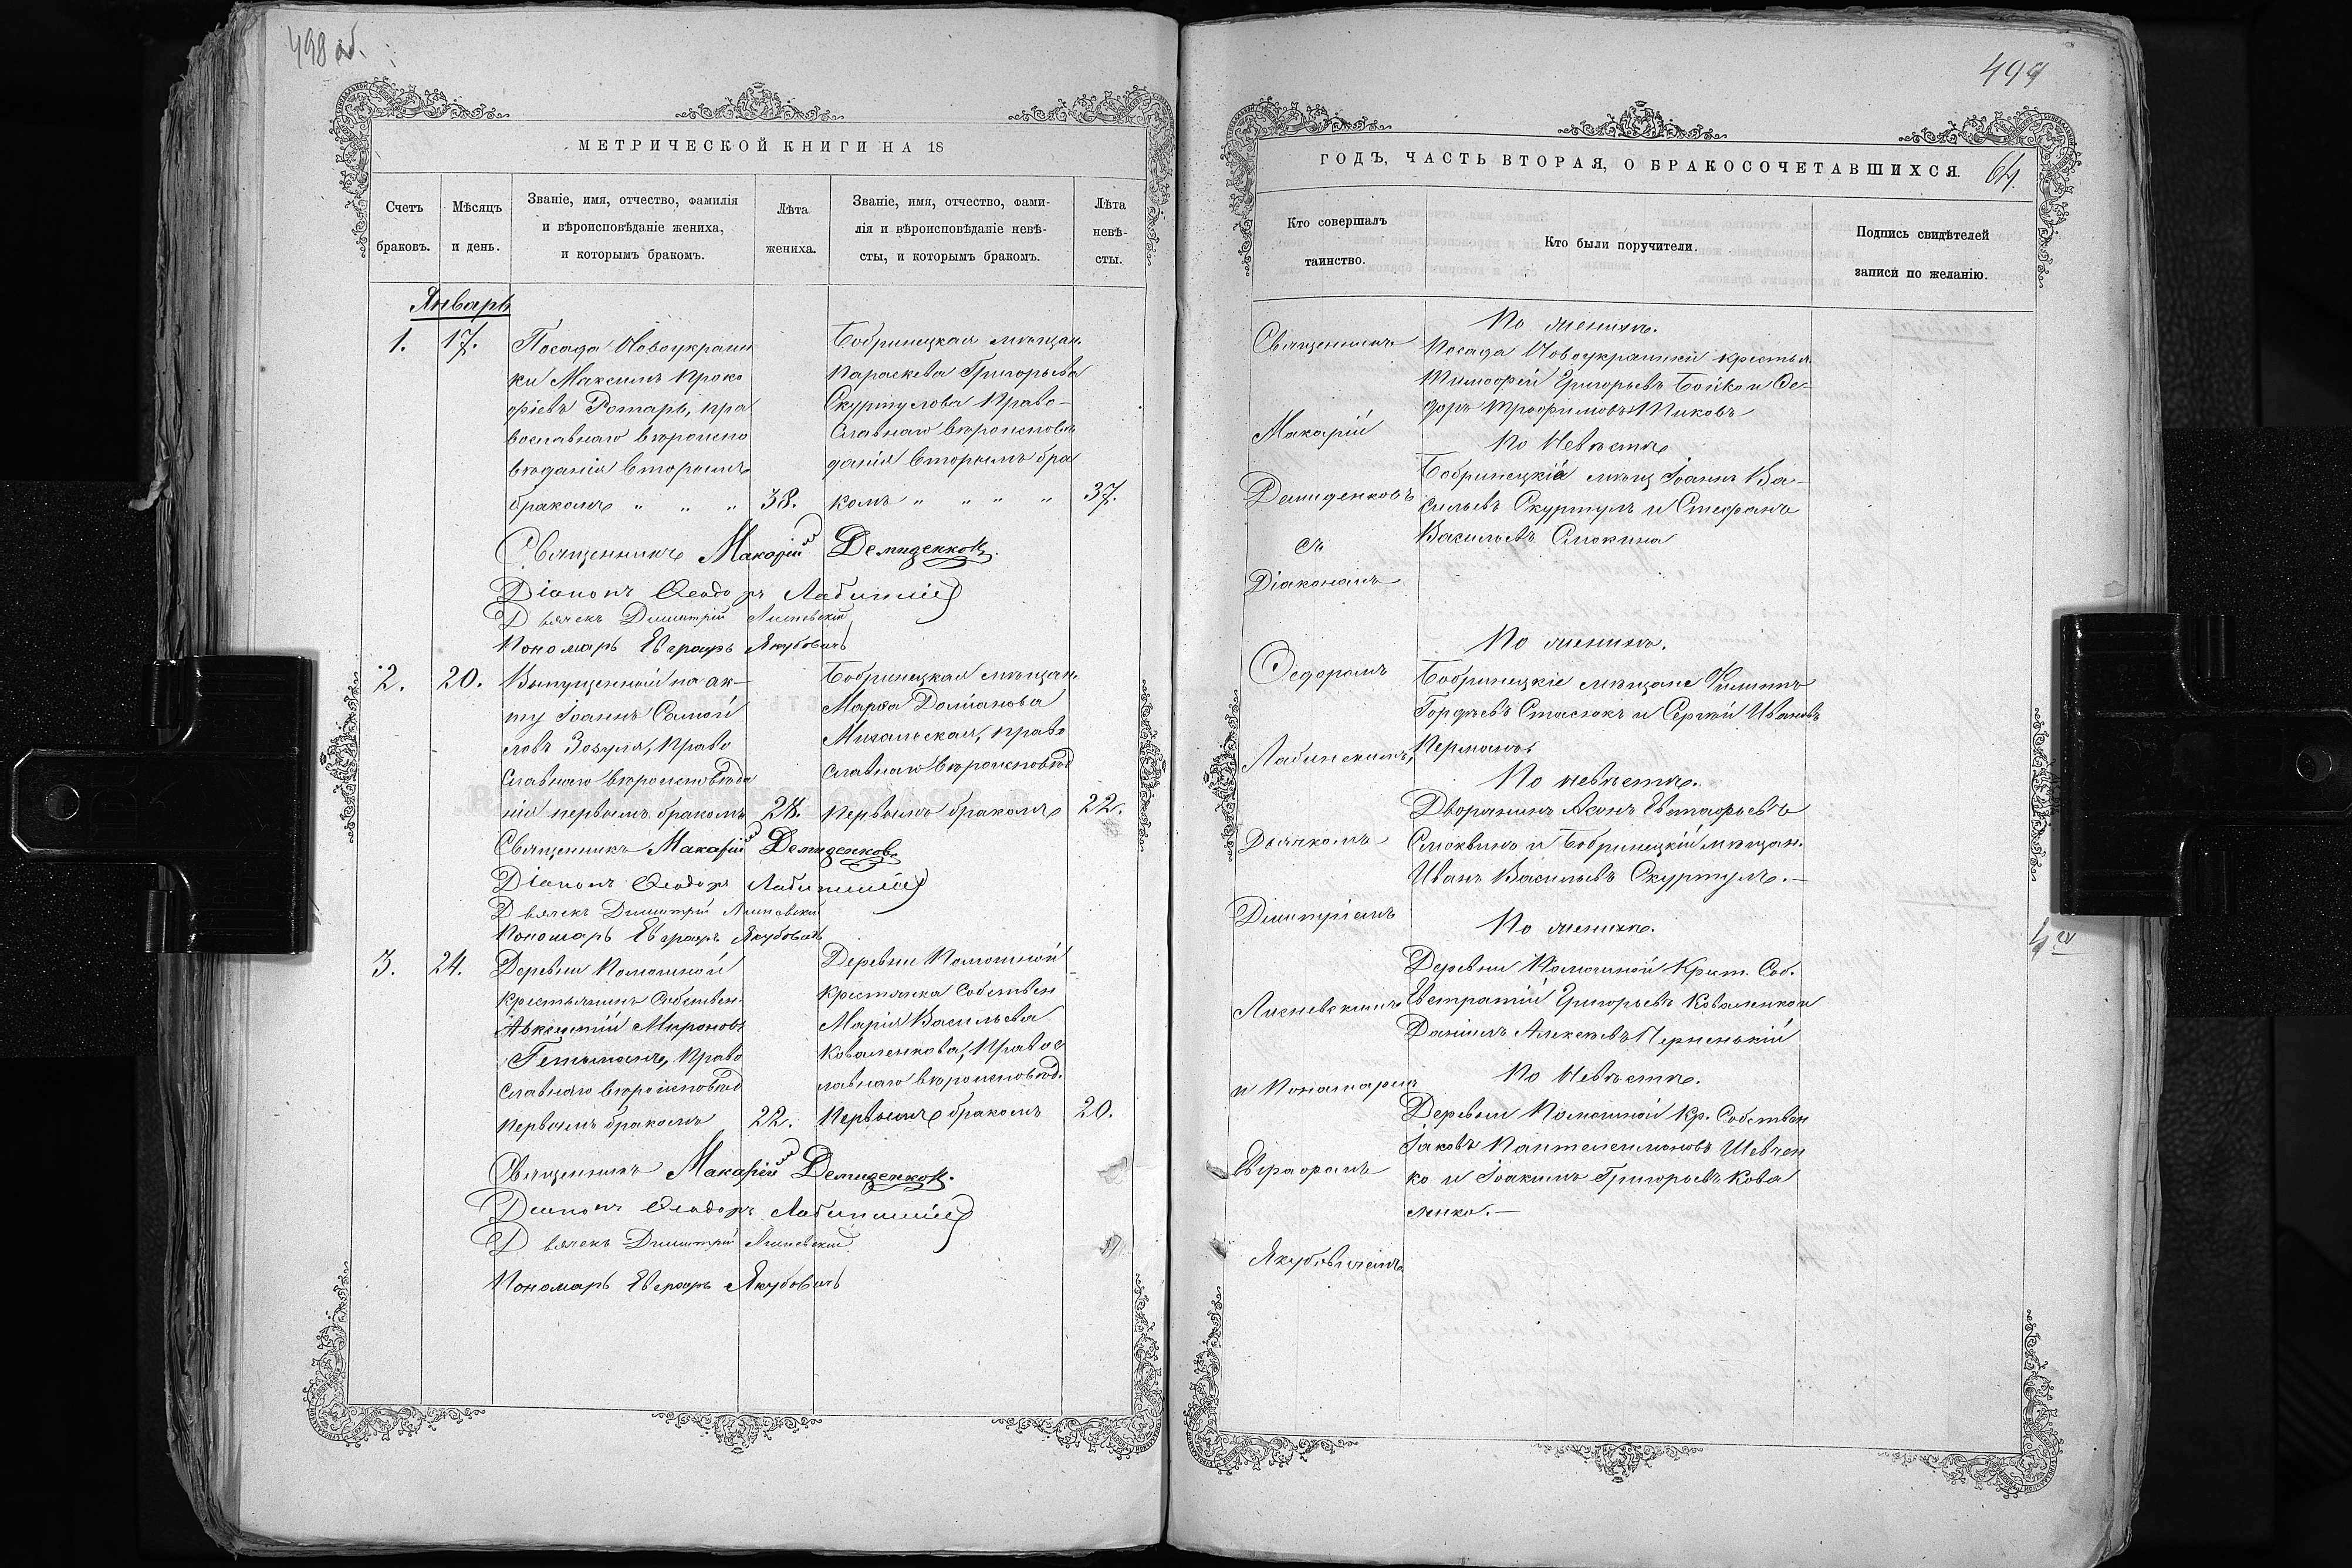 498 об.
МЕТРИЧЕСКОЙ КНИГИ НА 18
Счетъ браковъ.
Мѣсяцъ и день.
Званіе, имя, отчество, фамилія
и вѣроисповѣданіе жениха,
и которымъ бракомъ.
Лѣта
жениха.
Званіе, имя, отчество, фами-
лія и вѣроисповѣданіе невѣ-
сты, и которымъ бракомъ.
Лѣта
невѣ-
сты.
Январь
1. 17.
Посада Новоукраин
ки Максимъ Проко
фіевъ Ротарь, пра
вославнаго вѣроиспо
вѣданія вторымъ
бракомъ " " " 38.
Бобринецкая мѣщан.
Параскева Григорьева
Скуртулова Право-
славнаго вѣроисповѣ
данія вторымъ бра
комъ " " " " 37.
Священникъ Макарій Демиденковъ.
Діаконъ Ѳеодоръ Лабинскій
Дьячекъ Димитрій
Пономарь Евграфъ Якубовичъ
2. 20.
Выпущенный по ак-
ту Іоаннъ Самой
ловъ Зозуля, Право
славнаго вѣроисповѣда
нія первымъ бракомъ 28.
Бобринецкая мѣщан.
Марѳа Доміанова
Михальская, право
славнаго вѣроисповѣд
первымъ бракомъ 22.
Священникъ Макарій Демиденковъ.
Діаконъ Ѳеодоръ Лабинскій
Дьячекъ Димитрій
Пономарь Евграфъ Якубовичъ
3. 24.
Деревни Помошной
крестьянинъ Собствен.
Авксентій Мироновъ
Гетьманъ, Право
славнаго вѣроисповѣд
первымъ бракомъ 22.
Деревни Помошной
крестянка Собствен
Марія Васильева
Коваленкова, Правос
лавнаго вѣроисповѣд.
первымъ бракомъ 20.
Священникъ Макарій Демиденковъ.
Діаконъ Ѳеодоръ Лабинскій
Дьячекъ Димитрій
Пономарь Евграфъ Якубовичъ
499
ГОДЪ, ЧАСТЬ ВТОРАЯ, О БРАКОСОЧЕТАВШИХСЯ. 64.
Кто совершалъ
таинство.
Кто были поручители.
Подпись свидѣтелей
записи по желанію.
Священникъ
Макарій
Демиденковъ
съ
Діакономъ
Ѳедоромъ
Лабинскимъ,
Дьячкомъ
Димитріемъ
и Пономаремъ
Евграфомъ
Якубовичемъ
По женихѣ.
Посада Новоукраинки крестья.
Тимофей Григорьевъ Бойко и Ѳе-
доръ Трофимовъ
По Невѣстѣ
Бобринецкіе мѣщ Іоаннъ Ва-
сильевъ Скуртулъ и Стефанъ
Васильевъ
По женихѣ.
Бобринецкіе мѣщане Филиппъ
Гордѣевъ Стасюкъ и Сергѣй Ивановъ
По невѣстѣ.
Дворянинъ Евстафьевъ
и Бобринецкій мѣщан.
Иванъ Васильевъ Скуртулъ.—
По женихѣ.
Деревни Помошной Крест. Соб.
Евстратій Григорьевъ Коваленко и
Даніилъ Алексѣевъ Черненькій
По Невѣстѣ.
Деревни Помошной Кр. Собствен
Іаковъ Пантелеимоновъ Шевчен
ко и Іоакимъ Григорьевъ Кова
ленко.—